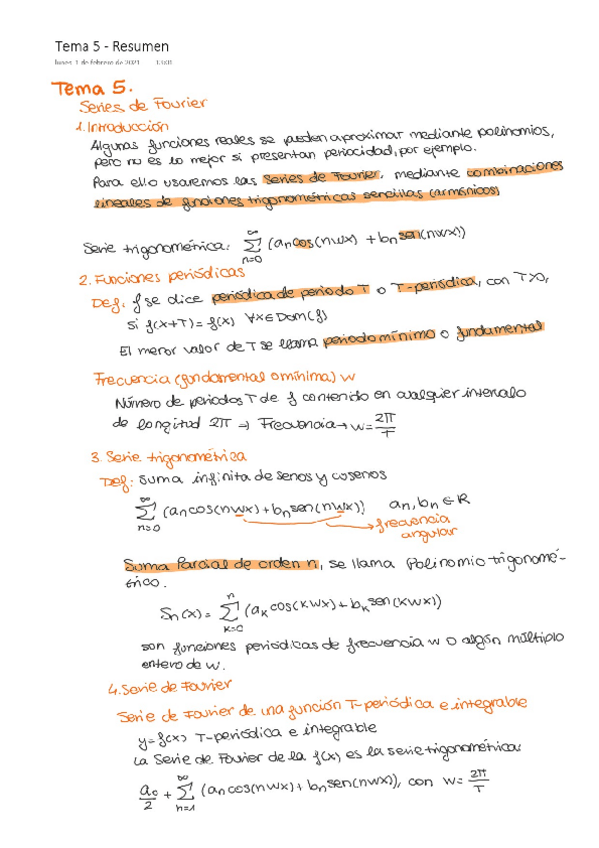 Tema 5 - Resumen
lunes, 1 de febrero de 2021
Tema 5.
Series de Fourier
1. Introducción
Algunas funciones reales se pueden aproximar mediante polinomios,
pero no es lo mejor si presentan periocidad, por ejemplo.
Para ello usaremos las Series de Fourier, mediante combinaciones
lineales de funciones trigonométricas sencillas (armónicos)
Serie trigonométrica: ∞ Σ n=0 (an cos(nwx) + bn sen(nwx))
2. Funciones periódicas
Def: f se dice periódica de periodo T o T-periódica, con T>0,
si f(x+T) = f(x) ∀x∈Dom(f)
El menor valor de T se llama periodo mínimo o fundamental
Frecuencia (fundamental o mínima) w
Número de periodos T de f contenido en cualquier intervalo
de longitud 2π → Frecuencia → w = 2π/T
3. Serie trigonométrica
Def: suma infinita de senos y cosenos
∞ Σ n=0 (an cos(nwx) + bn sen(nwx)) an, bn ∈ R
frecuencia
angular
Suma Parcial de orden n, se llama Polinomio trigonomé-
trico.
Sn(x) = n Σ k=0 (ak cos(kwx) + bk sen(kwx))
son funciones periódicas de frecuencia w o algún múltiplo
entero de w.
4. Serie de Fourier
Serie de Fourier de una función T-periódica e integrable
y=f(x) T-periódica e integrable
La Serie de Fourier de la f(x) es la serie trigonométrica:
a0/2 + ∞ Σ n=1 (an cos(nwx) + bn sen(nwx)), con w = 2π/T